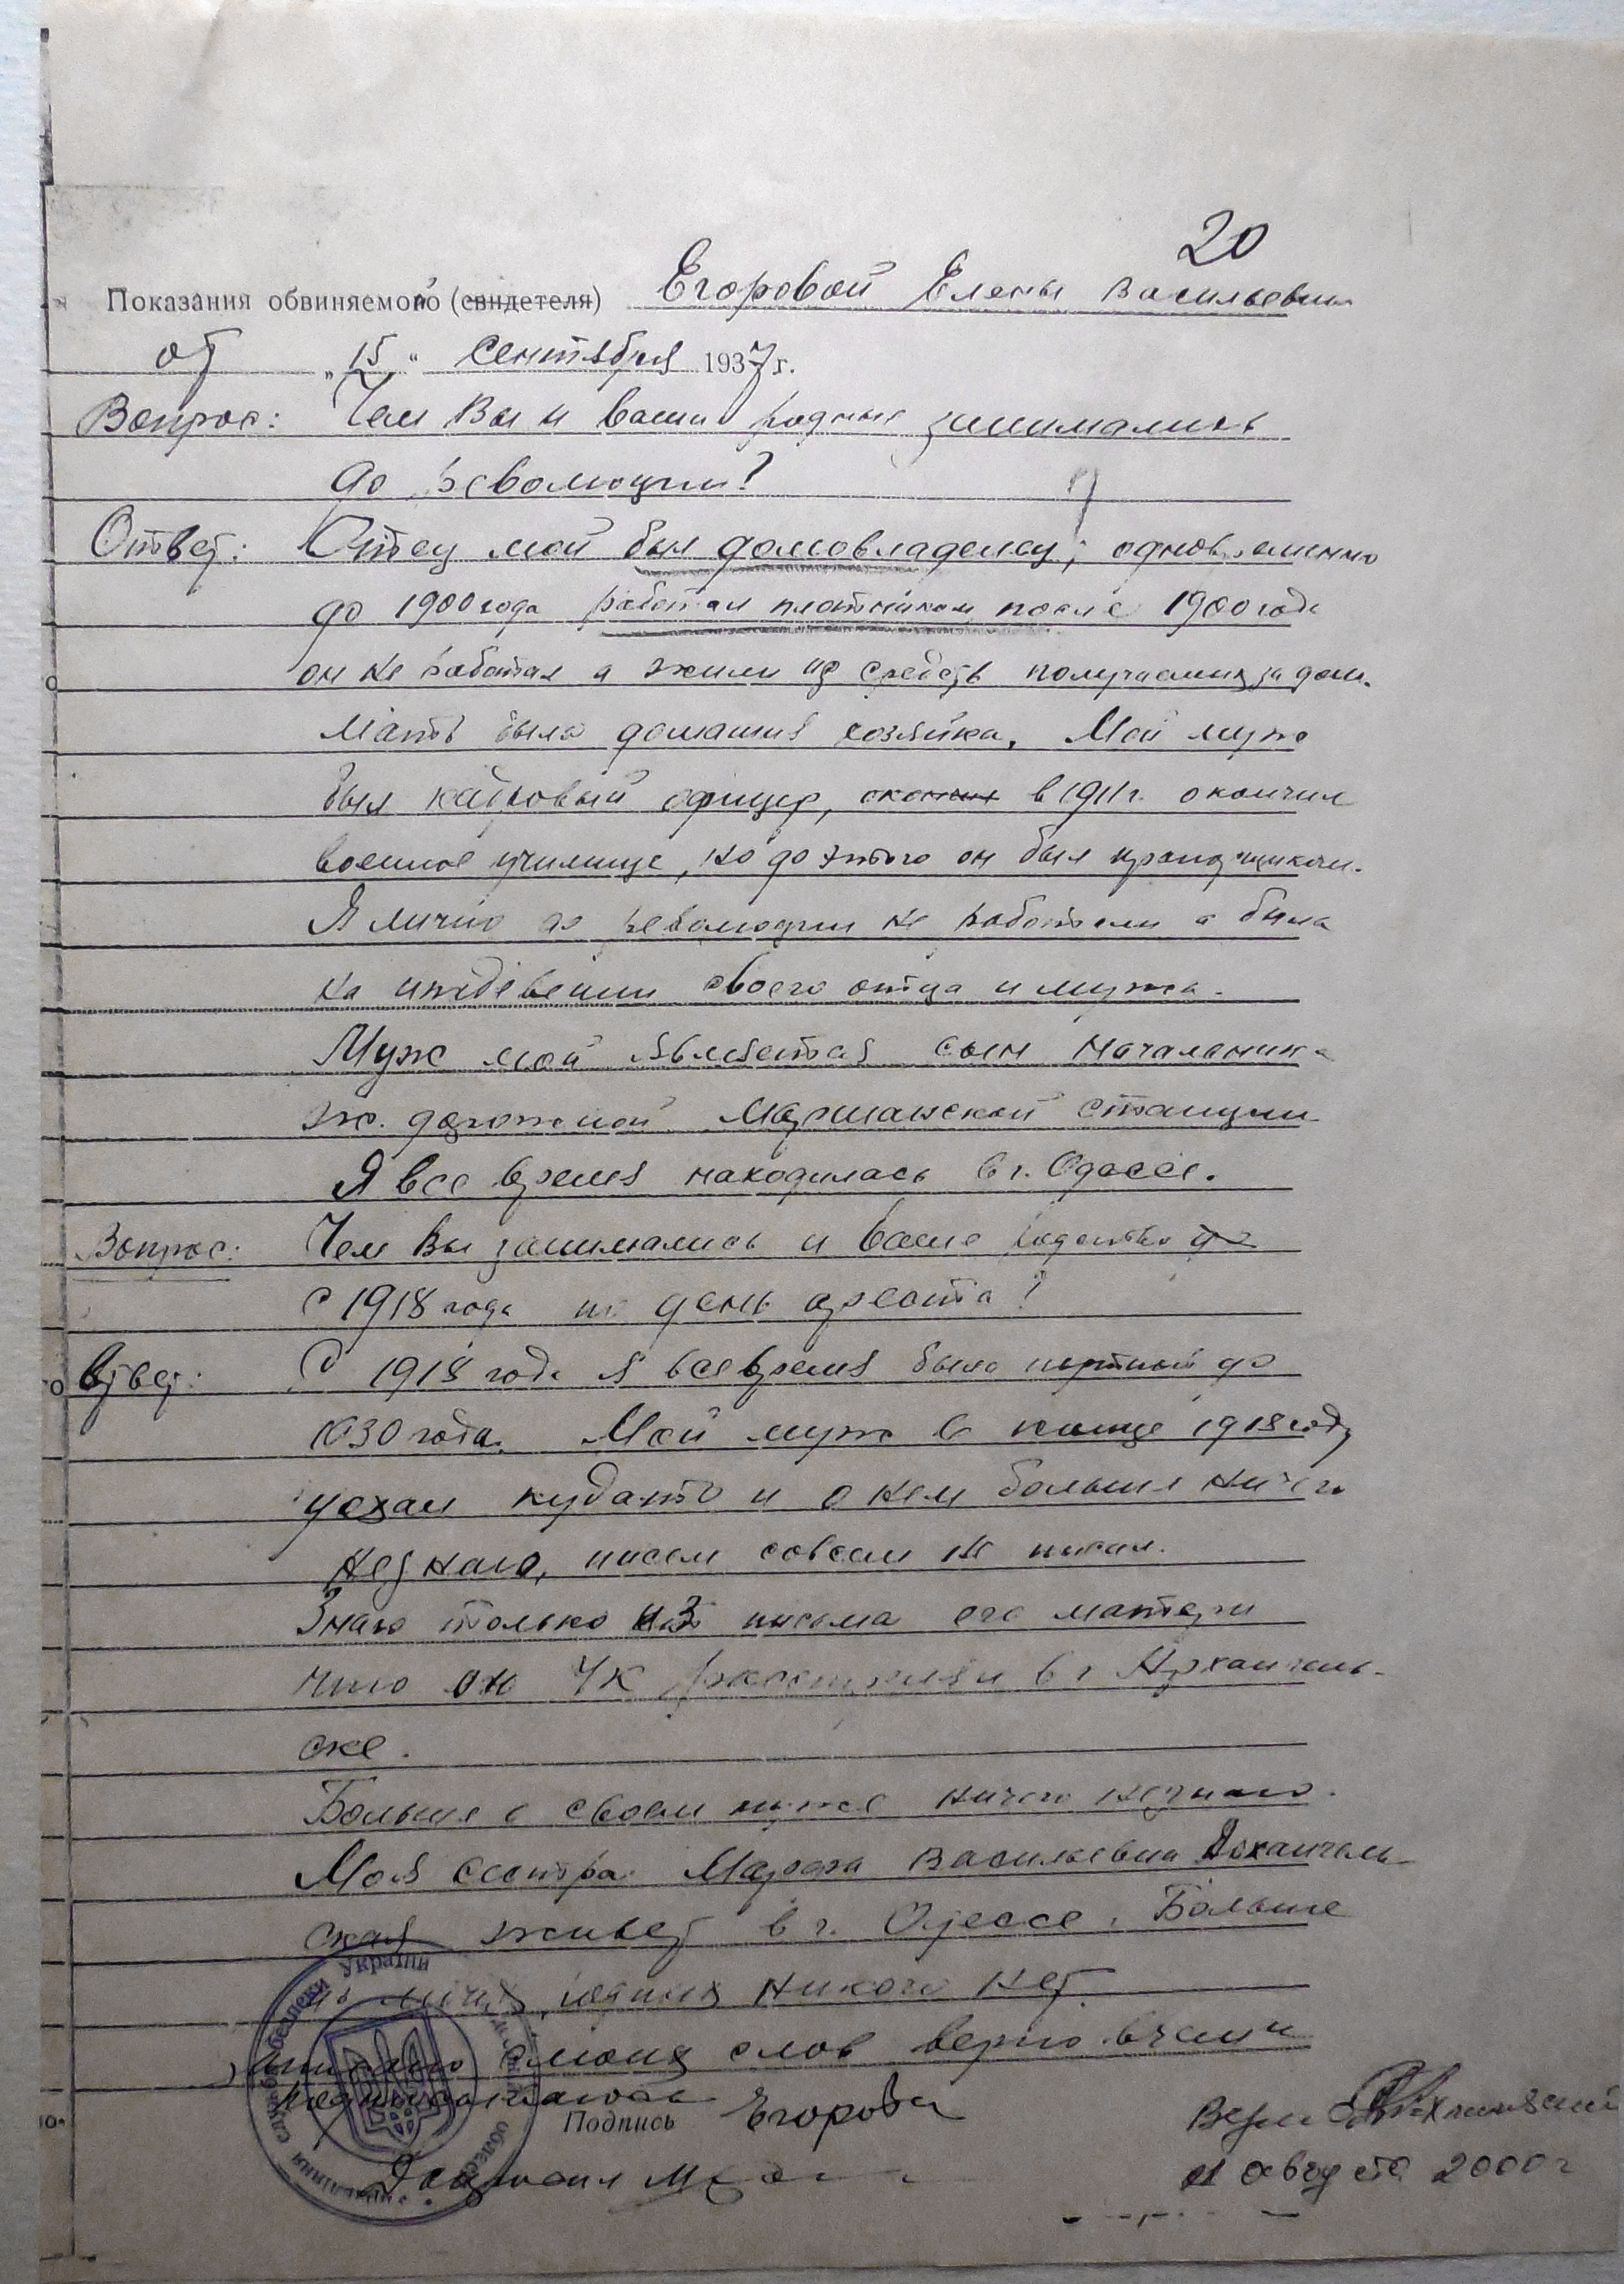 20
Показания обвиняемой (свидетеля) Егоровой Елены Васильевны
от „15" Сентября 1937 г.
Вопрос: Чем Вы и ваши родные занимались
до революции?
Ответ: Отец мой был домовладелец, одновременно
до 1900 года работал плотником после 1900 года
он не работал а жили из средств получаемых за дом.
Мать была домашняя хозяйка. Мой муж
был кадровый офицер, окончил в 1911 г. окончил
военное училище, но до этого он был
Я лично до революции не работала а была
на иждивении своего отца и мужа.
Муж мой является сын начальника
ж. дорожной станции
Я все время находилась в г. Одессе.
Вопрос: Чем Вы занимались и ваше
с 1918 года по день ареста?
Ответ: С 1918 года я все время была портной до
1930 года. Мой муж в конце 1918 году
уехал кудато и о нем больше ничего
незнаю, писем совсем не писал.
Знаю только из письма его матери
что он ЧК расстрелян в г Архангель-
ске.
Больше о своем муже ничего незнаю.
Моя сестра Васильевна Архангель-
ская живет в г. Одессе. Больше
родных никого нет.
с моих слов верно в чем и
подписываюсь
Подпись Егорова
Допросил
Служба безпеки України
Управління
області
1 августа 2000 г